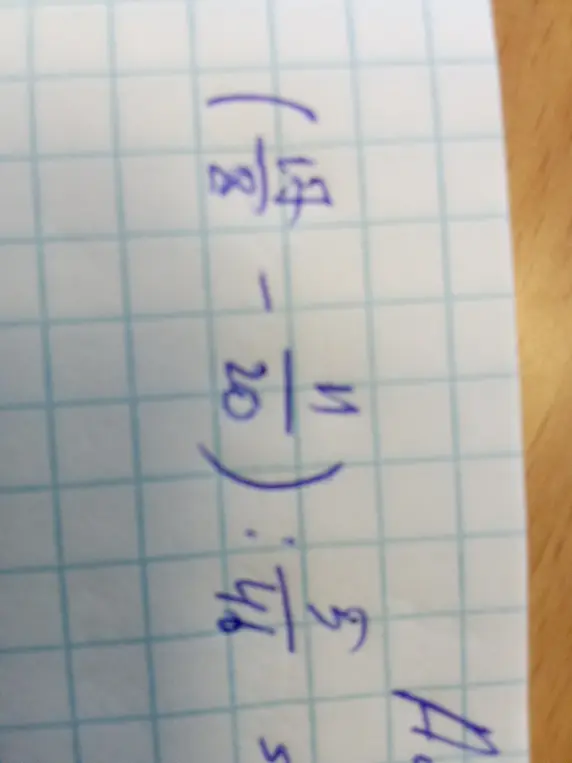 (17/8 - 11/20) : 5/46